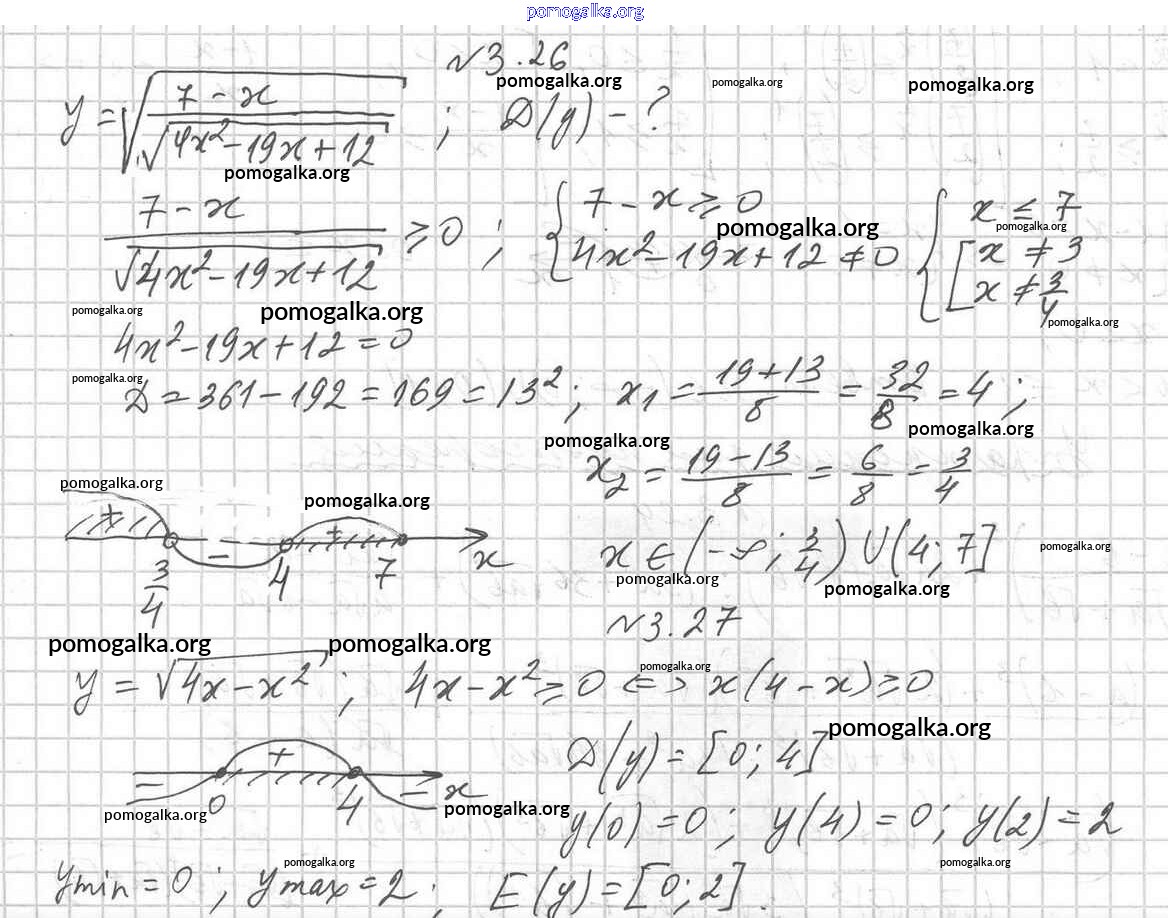 pomogalka.org
№3.26
pomogalka.org pomogalka.org pomogalka.org
y = √((7 - x)/√(4x² - 19x + 12)) ; D(y) - ?
pomogalka.org
(7 - x)/√(4x² - 19x + 12) ≥ 0 ; { 7 - x ≥ 0 4x² - 19x + 12 ≠ 0 { x ≤ 7 [ x ≠ 3 x ≠ 3/4
pomogalka.org pomogalka.org
pomogalka.org pomogalka.org pomogalka.org
4x² - 19x + 12 = 0
pomogalka.org
D = 361 - 192 = 169 = 13² ; x₁ = (19 + 13)/8 = 32/8 = 4 ;
pomogalka.org pomogalka.org
x₂ = (19 - 13)/8 = 6/8 = 3/4
pomogalka.org pomogalka.org
+ - + x
3/4 4 7
x ∈ (-∞; 3/4) ∪ (4; 7]
pomogalka.org pomogalka.org pomogalka.org
№3.27
pomogalka.org pomogalka.org pomogalka.org
y = √(4x - x²) ; 4x - x² ≥ 0 <=> x(4 - x) ≥ 0
pomogalka.org
D(y) = [0; 4]
- + - x
0 4
pomogalka.org pomogalka.org
y(0) = 0 ; y(4) = 0 ; y(2) = 2
pomogalka.org pomogalka.org
y min = 0 ; y max = 2 ; E(y) = [0; 2].